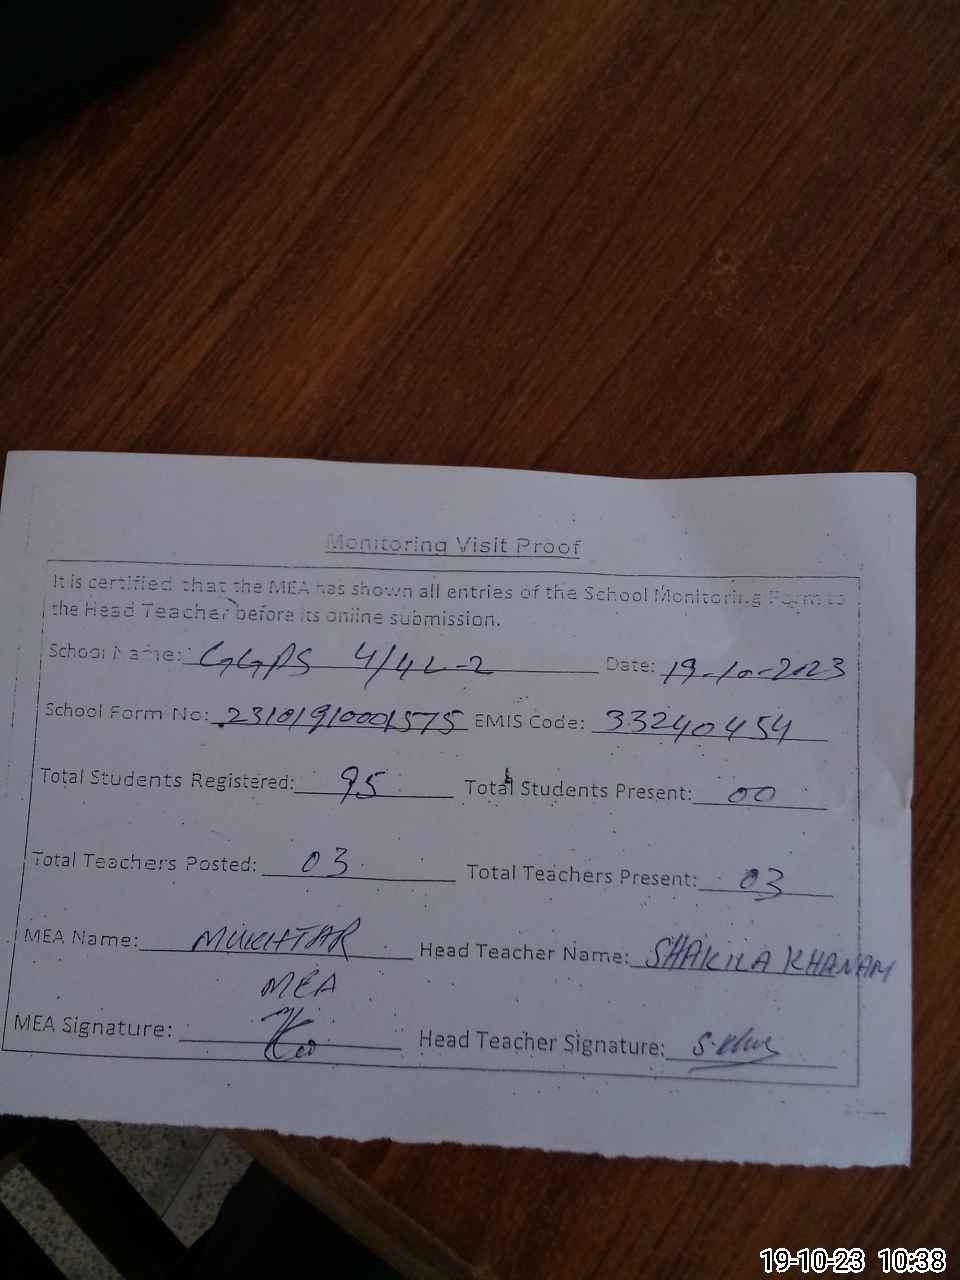 Monitoring Visit Proof
It is certified that the MEA has shown all entries of the School Monitoring Form to
the Head Teacher before its online submission.
School Name: GGPS 4/4L-2 Date: 19-10-2023
School Form No: 23101910001575 EMIS Code: 33240454
Total Students Registered: 95 Total Students Present: 00
Total Teachers Posted: 03 Total Teachers Present: 03
MEA Name: MUKHTAR Head Teacher Name: SHAKILA KHANAM
MEA
MEA Signature: Head Teacher Signature:
19-10-23 10:38